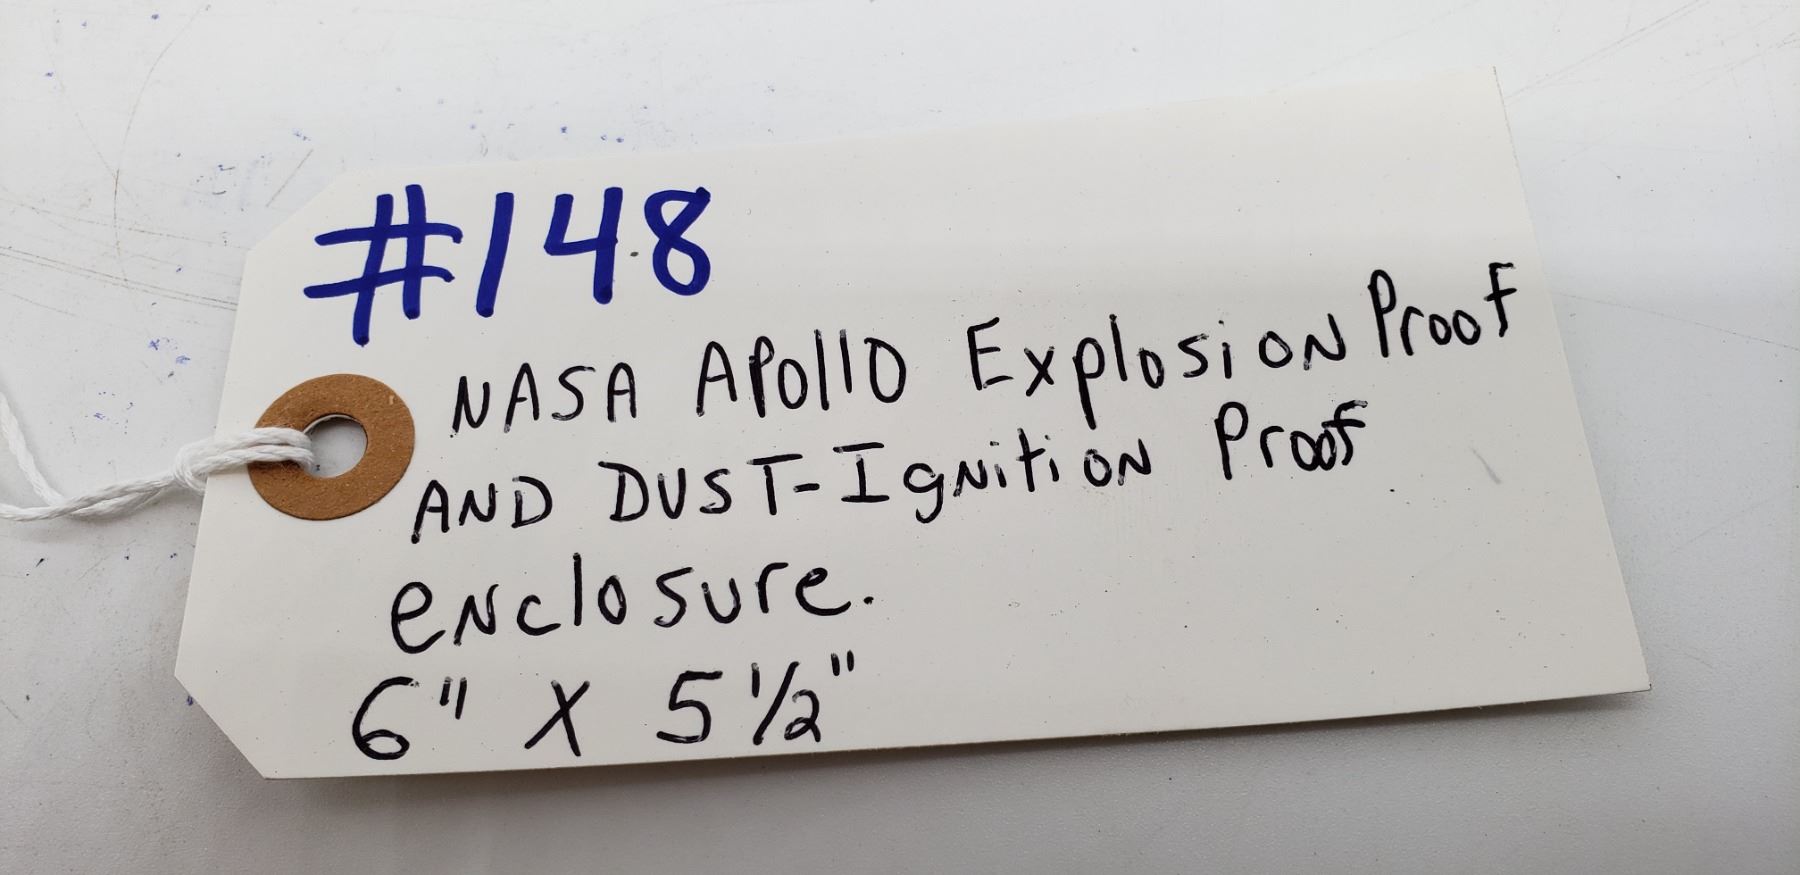 #148
NASA Apollo Explosion Proof
AND DUST-Ignition Proof
enclosure.
6" X 5 1/2"